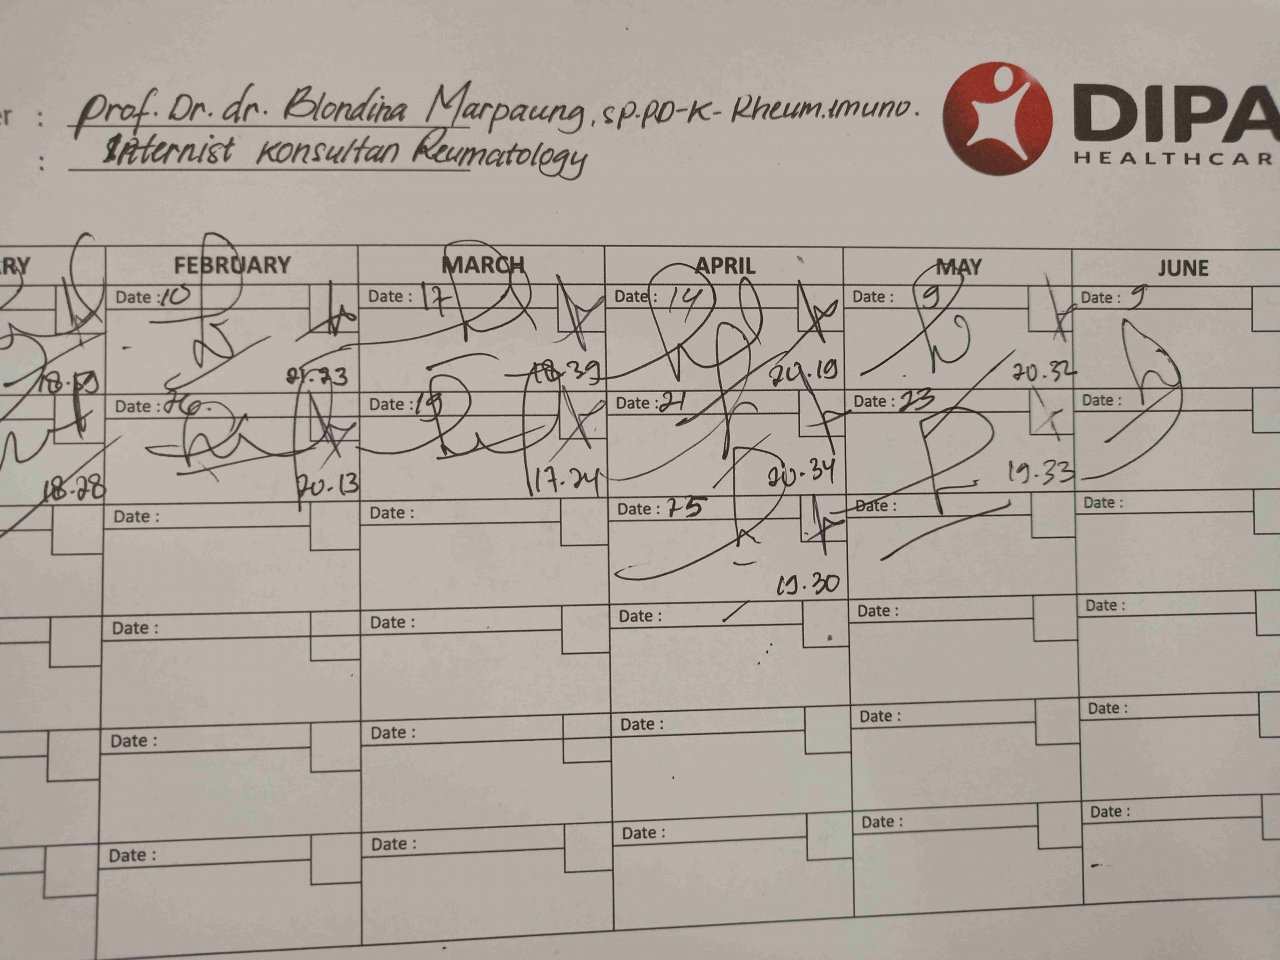 er : Prof. Dr. dr. Blondina Marpaung, SP.PD-K-Rheum.imuno.
: Internist Konsultan Reumatology
DIPA
HEALTHCAR
RY FEBRUARY MARCH APRIL MAY JUNE
Date : 10 Date : 17 Date : 14 Date : 9 Date : 9
21.23 18.39 20.19 20.32
Date : 26. Date : 19 Date : 21 Date : 23 Date :
18.28 20.13 17.24 20.34 19.33
Date : Date : Date : 25 Date : Date :
19.30
Date : Date : Date : Date : Date :
Date : Date : Date : Date : Date :
Date : Date : Date : Date : Date :